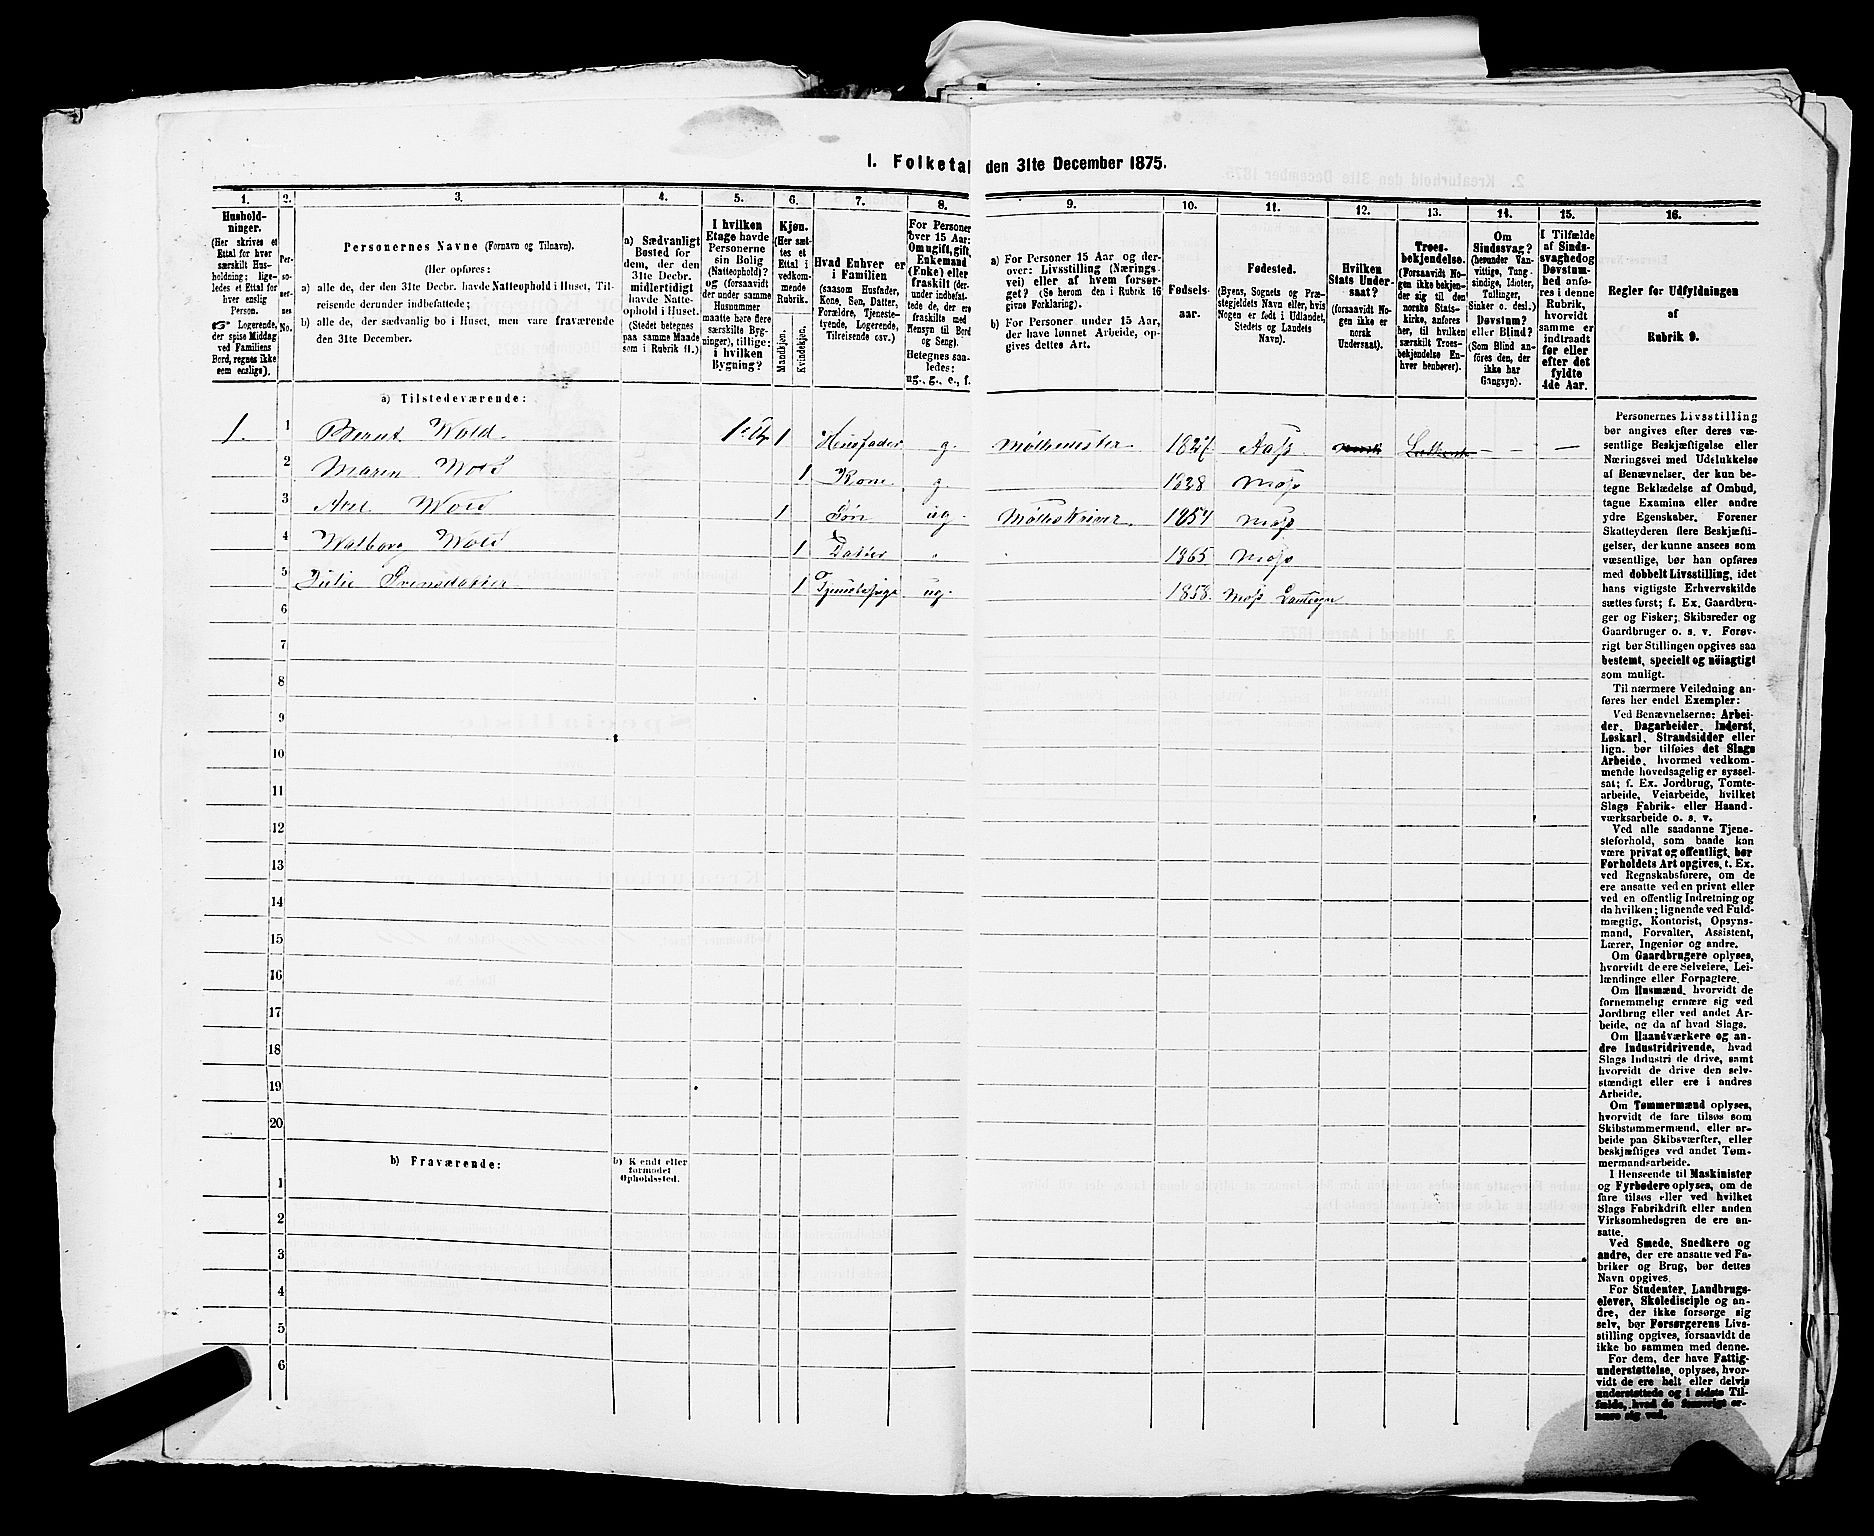 1. Folketal den 31te December 1875.
1. 2. 3. 4. 5. 6. 7. 8. 9. 10. 11. 12. 13. 14. 15. 16.
Husholdninger.
(Her skrives et
Ettal for hver
særskilt Husholdning;
ligeledes et Ettal for
hver enslig
Person.
Logerende,
der spise Middag
ved Familiens
Bord, regnes ikke
som enslige).
Personernes No.
Personernes Navne (Fornavn og Tilnavn).
(Her opføres:
a) alle de, der den 31te Decbr. havde Natteophold i Huset, Tilreisende
derunder indbefattede;
b) alle de, der sædvanlig bo i Huset, men vare fraværende
den 31te December.
a) Sædvanligt
Bosted for
dem, der den
31te Decbr.
midlertidigt
havde Natteophold
i Huset.
(Stedet betegnes
paa samme Maade
som i Rubrik 11.)
I hvilken
Etage havde
Personerne
sin Bolig
(Natteophold)?
og (forsaavidt
der under samme
Husnummer
maatte høre flere
særskilte Bygninger),
tillige:
i hvilken
Bygning?
Kjøn.
(Her sættes
et
Ettal i
vedkommende
Rubrik.
Mandkjøn.
Kvindekjøn.
Hvad Enhver er
i Familien
(saasom Husfader,
Kone, Søn, Datter,
Forældre, Tjenestetyende,
Logerende,
Tilreisende osv.)
For Personer
over 15 Aar:
Om ugift, gift,
Enkemand
(Enke) eller
fraskilt (derunder
indbefattede
de, der ere
fraskilte med
Hensyn til Bord
og Seng).
Betegnes saaledes:
ug., g., e., f.
a) For Personer 15 Aar og derover:
Livsstilling (Næringsvei)
eller af hvem forsørget?
(Se herom den i Rubrik 16
givne Forklaring).
b) For Personer under 15 Aar,
der have lønnet Arbeide, opgives
dettes Art.
Fødselsaar.
Fødested.
(Byens, Sognets og Præstegjeldets
Navn eller, hvis
Nogen er født i Udlandet,
Stedets og Landets
Navn).
Hvilken
Stats Undersaat?
(forsaavidt Nogen
ikke er
norsk
Undersaat).
Troesbekjendelse.
(Forsaavidt Nogen
ikke bekjender
sig til den
norske Statskirke,
anføres
her, til hvilken
særskilt Troesbekjendelse
Enhver
henhører).
Om
Sindssvag?
(herunder Vanvittige,
Tungsindige,
Idioter,
Tullinger,
Sinker o. desl.)
Døvstum?
eller Blind?
(Som Blind anføres
den, der
ikke har
Gangsyn).
I Tilfælde
af Sindssvaghed
og
Døvstumhed
anføres
i denne
Rubrik,
hvorvidt
samme er
indtraadt
før eller
efter det
fyldte
4de Aar.
Regler for Udfyldningen
af
Rubrik 9.
a) Tilstedeværende:
1. 1 Bernt Wold. 1 Huusfader g. Møllemester 1827 Aas Norsk Luthersk — — —
2 Maren Wold 1 Kone g Moss
3 Axel Wold 1 Søn ug. Mølleskriver. 1854 Moss
4 Walborg Wold 1 Datter 1865 Moss
5 Julie Svensdatter 1 Tjenestepige ug. 1858. Moss Landsogn
6
7
8
9
10
11
12
13
14
15
16
17
18
19
20
b) Fraværende: b) Kjendt eller
formodet
Opholdssted.
1
2
3
4
5
6
Personernes Livsstilling
bør angives efter deres væsentlige
Beskjæftigelse eller
Næringsvei med Udelukkelse
af Benævnelser, der kun betegne
Beklædelse af Ombud,
tagne Examina eller andre
ydre Egenskaber. Forener
Skatteyderen flere Beskjæftigelser,
der kunne ansees som
væsentlige, bør han opføres
med dobbelt Livsstilling, idet
hans vigtigste Erhvervskilde
sættes først; f. Ex. Gaardbruger
og Fisker; Skibsreder og
Gaardbruger o. s. v. Forøvrigt
bør Stillingen opgives saa
bestemt, specielt og nöiagtigt
som muligt.
Til nærmere Veiledning anføres
her endel Exempler:
Ved Benævnelserne: Arbeider,
Dagarbeider, Inderst,
Løskarl, Strandsidder eller
lign. bør tilføies det Slags
Arbeide, hvormed vedkommende
hovedsagelig er sysselsat;
f. Ex. Jordbrug, Tomtearbeide,
Veiarbeide, hvilket
Slags Fabrik- eller Haandværksarbeide
o. s. v.
Ved alle saadanne Tjenesteforhold,
som baade kan
være privat og offentligt, bør
Forholdets Art opgives, t. Ex.
ved Regnskabsførere, om de
ere ansatte ved en privat eller
ved en offentlig Indretning og
da hvilken; lignende ved Fuldmægtig,
Kontorist, Opsynsmand,
Forvalter, Assistent,
Lærer, Ingeniør og andre.
Om Gaardbrugere oplyses,
hvorvidt de ere Selveiere, Leilændinge
eller Forpagtere.
Om Husmænd, hvorvidt de
fornemmelig ernære sig ved
Jordbrug eller ved andet Arbeide,
og da af hvad Slags.
Om Haandværkere og andre
Industridrivende, hvad
Slags Industri de drive, samt
hvorvidt de drive den selvstændigt
eller ere i andres
Arbeide.
Om Tømmermænd oplyses,
hvorvidt de fare tilsøs som
Skibstømmermænd, eller arbeide
paa Skibsværfter, eller
beskjæftiges ved andet Tømmermandsarbeide.
I Henseende til Maskinister
og Fyrbødere oplyses, om de
fare tilsøs eller ved hvilket
Slags Fabrikdrift eller anden
Virksomhedsgren de ere ansatte.
Ved Smede, Snedkere og
andre, der ere ansatte ved Fabriker
og Brug, bør dettes
Navn opgives.
For Studenter, Landbrugselever,
Skoledisciple og andre,
der ikke forsørge sig
selv, bør Forsørgerens Livsstilling
opgives, forsaavidt de
ikke bo sammen med denne.
For dem, der have Fattigunderstøttelse,
oplyses, hvorvidt
de ere helt eller delvis
understøttede og i sidste Tilfælde,
hvad de forøvrigt ernære
sig ved.